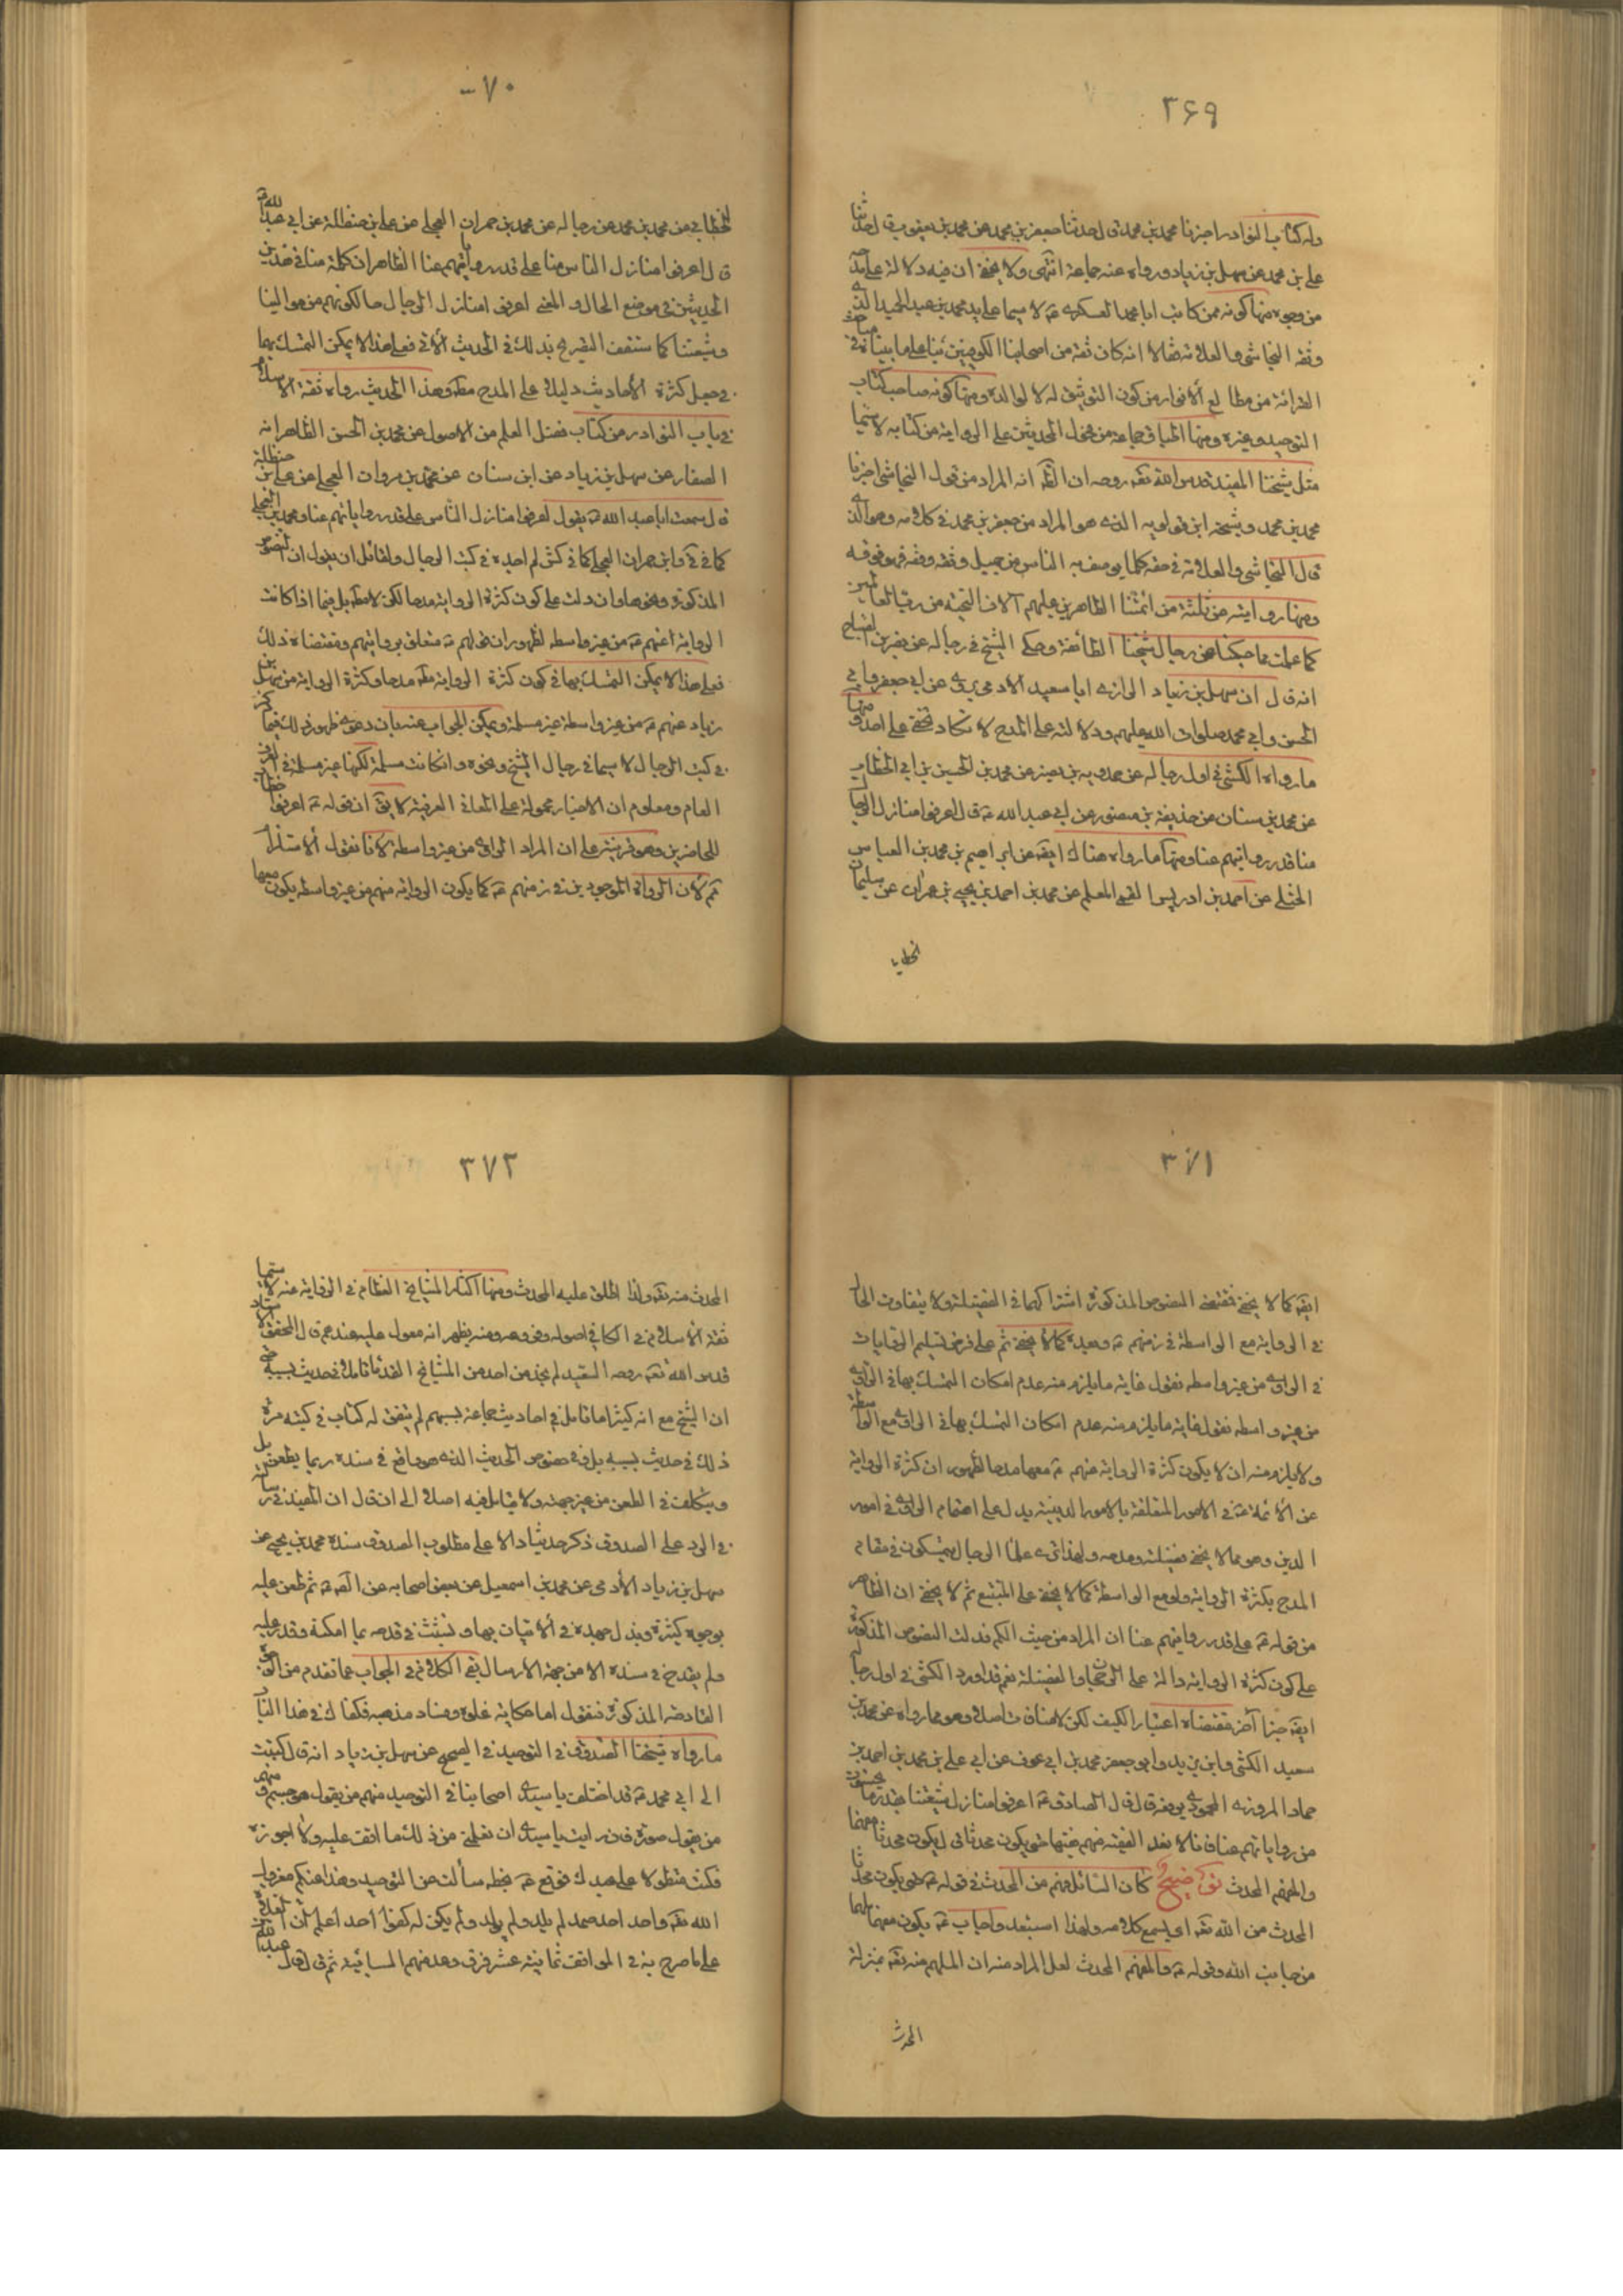 ٣۶٩
وله كتاب النوادر اخبرنا محمد بن محمد قال حدثنا جعفر بن محمد عن محمد بن يعقوب قال حدثنا
علي بن محمد عن سهل بن زياد ورواه عنه جماعة انتهى ولا يخفى ان فيه دلالة على
من وجوه منها كونه ممن كاتب ابا محمد العسكري ع لا سيما على يد محمد بن عبد الحميد الذي
وثقه النجاشي والعلامة فقالا انه كان ثقة من اصحابنا الكوفيين بناء على ما بيناه في
من مطالع الانوار من كون التوثيق له لا لوالده ومنها كونه صاحب كتاب
التوحيد وغيره ومنها اطباق جماعة من فحول المحدثين على الرواية من كتابه لا سيما
مثل شيخنا المفيد قدس الله تعه روحه ان الظ انه المراد من قول النجاشي اخبرنا
محمد بن محمد وشيخه ابن قولويه الذي هو المراد من جعفر بن محمد في كلامه وهو الذي
قال النجاشي والعلامة في حقه كلما يوصف به الناس من جميل وثقة وفقه فهو فوقه
ومنها روايته عن ثلثة من ائمتنا الطاهرين عليهم آلاف التحية من رب العالمين
كما علمت مما حكينا عن رجال شيخنا الطائفة وحكى الشيخ في رجاله عن نصر بن الصباح
انه قال ان سهل بن زياد الرازي ابا سعيد الادمي يروي عن ابي جعفر وابي
الحسن وابي محمد صلوات الله عليهم ودلالته على المدح لا تكاد تخفى على احد ومنها
ما رواه الكشي في اول رجاله عن حمدويه بن نصير عن محمد بن الحسين بن ابي الخطاب
عن محمد بن سنان عن حذيفة بن منصور عن ابي عبد الله ع قال اعرفوا منازل الرجال
منا قدر رواياتهم عنا ومنها ما رواه هناك ايضه عن ابراهيم بن محمد بن العباس
الختلي عن احمد بن ادريس القمي المعلم عن محمد بن احمد بن يحيى بن عمران عن سليمان
الخطابي
٧٠
الخطابي عن محمد بن محمد عن رجاله عن محمد بن حمران العجلي عن علي بن حنظلة عن ابي عبد الله ع
قال اعرفوا منازل الناس منا على قدر رواياتهم عنا الظاهر ان كلمة منا في هذين
الحديثين في موضع الحال والمعنى اعرفوا منازل الرجال حالكونهم من موالينا
وشيعتنا كما ستقف التصريح بذلك في الحديث الاتي فعلى هذا لا يمكن التمسك بهما
في جعل كثرة الأحاديث دليلا على المدح مطه وهذا الحديث رواه ثقة الاسلام
في باب النوادر من كتاب فضل العلم من الاصول عن محمد بن الحسن الظاهر انه
الصفار عن سهل بن زياد عن ابن سنان عن محمد بن مروان العجلي عن علي بن حنظلة
قال سمعت ابا عبد الله ع يقول اعرفوا منازل الناس على قدر رواياتهم عنا ومحمد بن العجلي
كما في في وابن حمران العجلي كما في كش لم اجده في كتب الرجال ولقائل ان يقول ان النصوص
المذكورة ونحوها وان دلت على كون كثرة الرواية مدحا لكن لا مطه بل فيما اذا كانت
الرواية عنهم ع من غير واسطة لظهور ان قولهم ع متعلق بروايتهم ومقتضاه ذلك
فعلى هذا لا يمكن التمسك بها في كون كثرة الرواية مطه مدحا وكثرة الرواية من سهل بن
زياد عنهم ع من غير واسطة غير مسلمة ويمكن الجواب عنه بان دعوى ظهور ذلك فيما ذكر
في كتب الرجال لا سيما في رجال الشيخ ونحوه وانكانت مسلمة لكنها غير مسلمة في العرف
العام ومعلوم ان الاخبار محمولة على المعاني العرفية لا يق ان قوله ع اعرفوا خطاب
للحاضرين وهو قرينة على ان المراد الراوي من غير واسطة لانا نقول ألا سلم
ثم لان الرواة الموجودين في زمنهم ع كما يكون الرواية منهم من غير واسطة يكون معها
٣٧١
ايضه كما لا يخفى فمقتضى النصوص المذكورة اشتراكهما في الفضيلة ولا يتفاوت الحال
في الرواية مع الواسطة في زمنهم ع وبعده كما لا يخفى ثم على فرض تسليم الروايات
في الراوي من غير واسطه نقول غاية ما يلزم منه عدم امكان التمسك بها في الراوي
من غير واسطه نقول غاية ما يلزم منه عدم امكان التمسك بها في الراوي مع الواسطة
ولا يلزم منه ان لا يكون كثرة الرواية عنهم ع معها مدحا لظهور ان كثرة الرواية
عن الأئمة ع في الامور المتعلقة بالامور الدينية يدل على اهتمام الراوي في امور
الدين وهو مما لا يخفى فضيلته ومدحه ولهذا ترى علماء الرجال يتمسكون في مقام
المدح بكثرة الرواية ولو مع الواسطة كما لا يخفى على المتتبع ثم لا يخفى ان الظاهر
من قوله ع على قدر رواياتهم عنا ان المراد من حيث الكم فدلت النصوص المذكورة
على كون كثرة الرواية دالة على الرجحان والفضيلة نعم قد اورد الكشي في اول رجاله
ايضه خبرا آخر مقتضاه اعتبار الكيف لكن لا منافات اصلا وهو ما رواه عن محمد بن
سعيد الكشي وابن يزيد وابو جعفر محمد بن ابي عوف عن ابي علي بن محمد بن احمد بن
حماد المروزي المحمودي يرفعه قال قال الصادق ع اعرفوا منازل شيعتنا بقدر ما يحسنون
من رواياتهم عنا فانا لا نعد الفقيه منهم فقيها حتى يكون محدثا قال يكون مفهما
والمفهم المحدث توضيح كان السائل فهم من المحدث في قوله ع حتى يكون محدثا
المحدث من الله تعه اي يسمع كلامه ولهذا استبعد واجاب ع يكون مفهما ملهما
من جانب الله وقوله ع والمفهم المحدث لعل المراد منه ان الملهم منه تعه بمنزلة
المحدث
٣٧٢
المحدث منه تعه ولذا اطلق عليه المحدث ومنها اكثار المشايخ العظام في الرواية عنه لا سيما
ثقة الاسلام في الكافي اصوله وفروعه ومنه يظهر انه معول عليه عندهم قال المحقق الاستاد
قدس الله تعه روحه السعيد لم نجد من احد من المشايخ القدماء تاملا في حديث بسببه حتى
ان الشيخ مع انه كثيرا ما تامل في احاديث جماعة بسببهم لم يتفق له كتاب في كتبه مرة
ذلك في حديث بسببه بل وفي خصوص الحديث الذي هو واقع في سنده ربما يطعن بل
ويتكلف في الطعن من غير جهته ولا يتامل فيه اصلا الى ان قال ان المفيد في رسالته
في الرد على الصدوق ذكر حديثا دالا على مطلوب الصدوق سنده محمد بن يحيى عن
سهل بن زياد الأدمي عن محمد بن اسمعيل عن بعض اصحابه عن الصه ع ثم طعن عليه
بوجوه كثيرة وبذل جهده في الاتيان بها وتشبث في قدحه بما امكنه وقدر عليه
ولم يقدح في سنده الا من جهة الارسال بقي الكلام في الجواب عما تقدم من الوجوه
القادحة المذكورة فنقول اما حكاية غلوه وفساد مذهبه فكفاك في هذا الباب
ما رواه شيخنا الصدوق في التوحيد في الصحيح عن سهل بن زياد انه قال كتبت
الى ابي محمد ع قد اختلف يا سيدي اصحابنا في التوحيد منهم من يقول هو جسم ومنهم
من يقول صورة فان رايت يا سيدي ان تعلمني من ذلك ما اقف عليه ولا اجوزه
فعلت متطولا على عبدك فوقع ع بخطه سألت عن التوحيد وهذا عنكم معزول
الله تعه واحد احد صمد لم يلد ولم يولد ولم يكن له كفوا احد اعلم ان الغلاة
على ما صرح به في المواقف ثمانية عشر فرقة وعد منهم السبائية ثم قال قال عبد الله